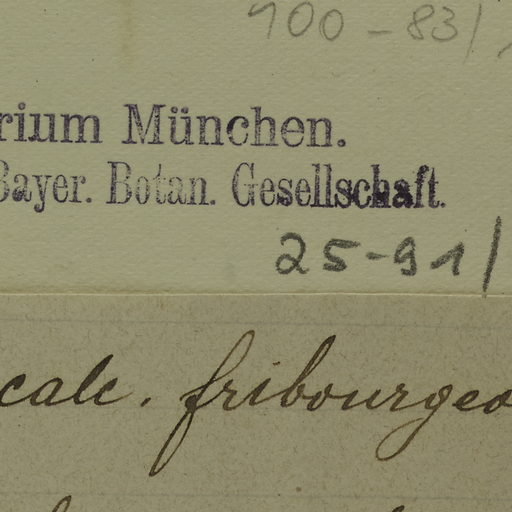 100-83/
rium München.
Bayer. Botan. Gesellschaft.
25-91/
calc. fribourgeo